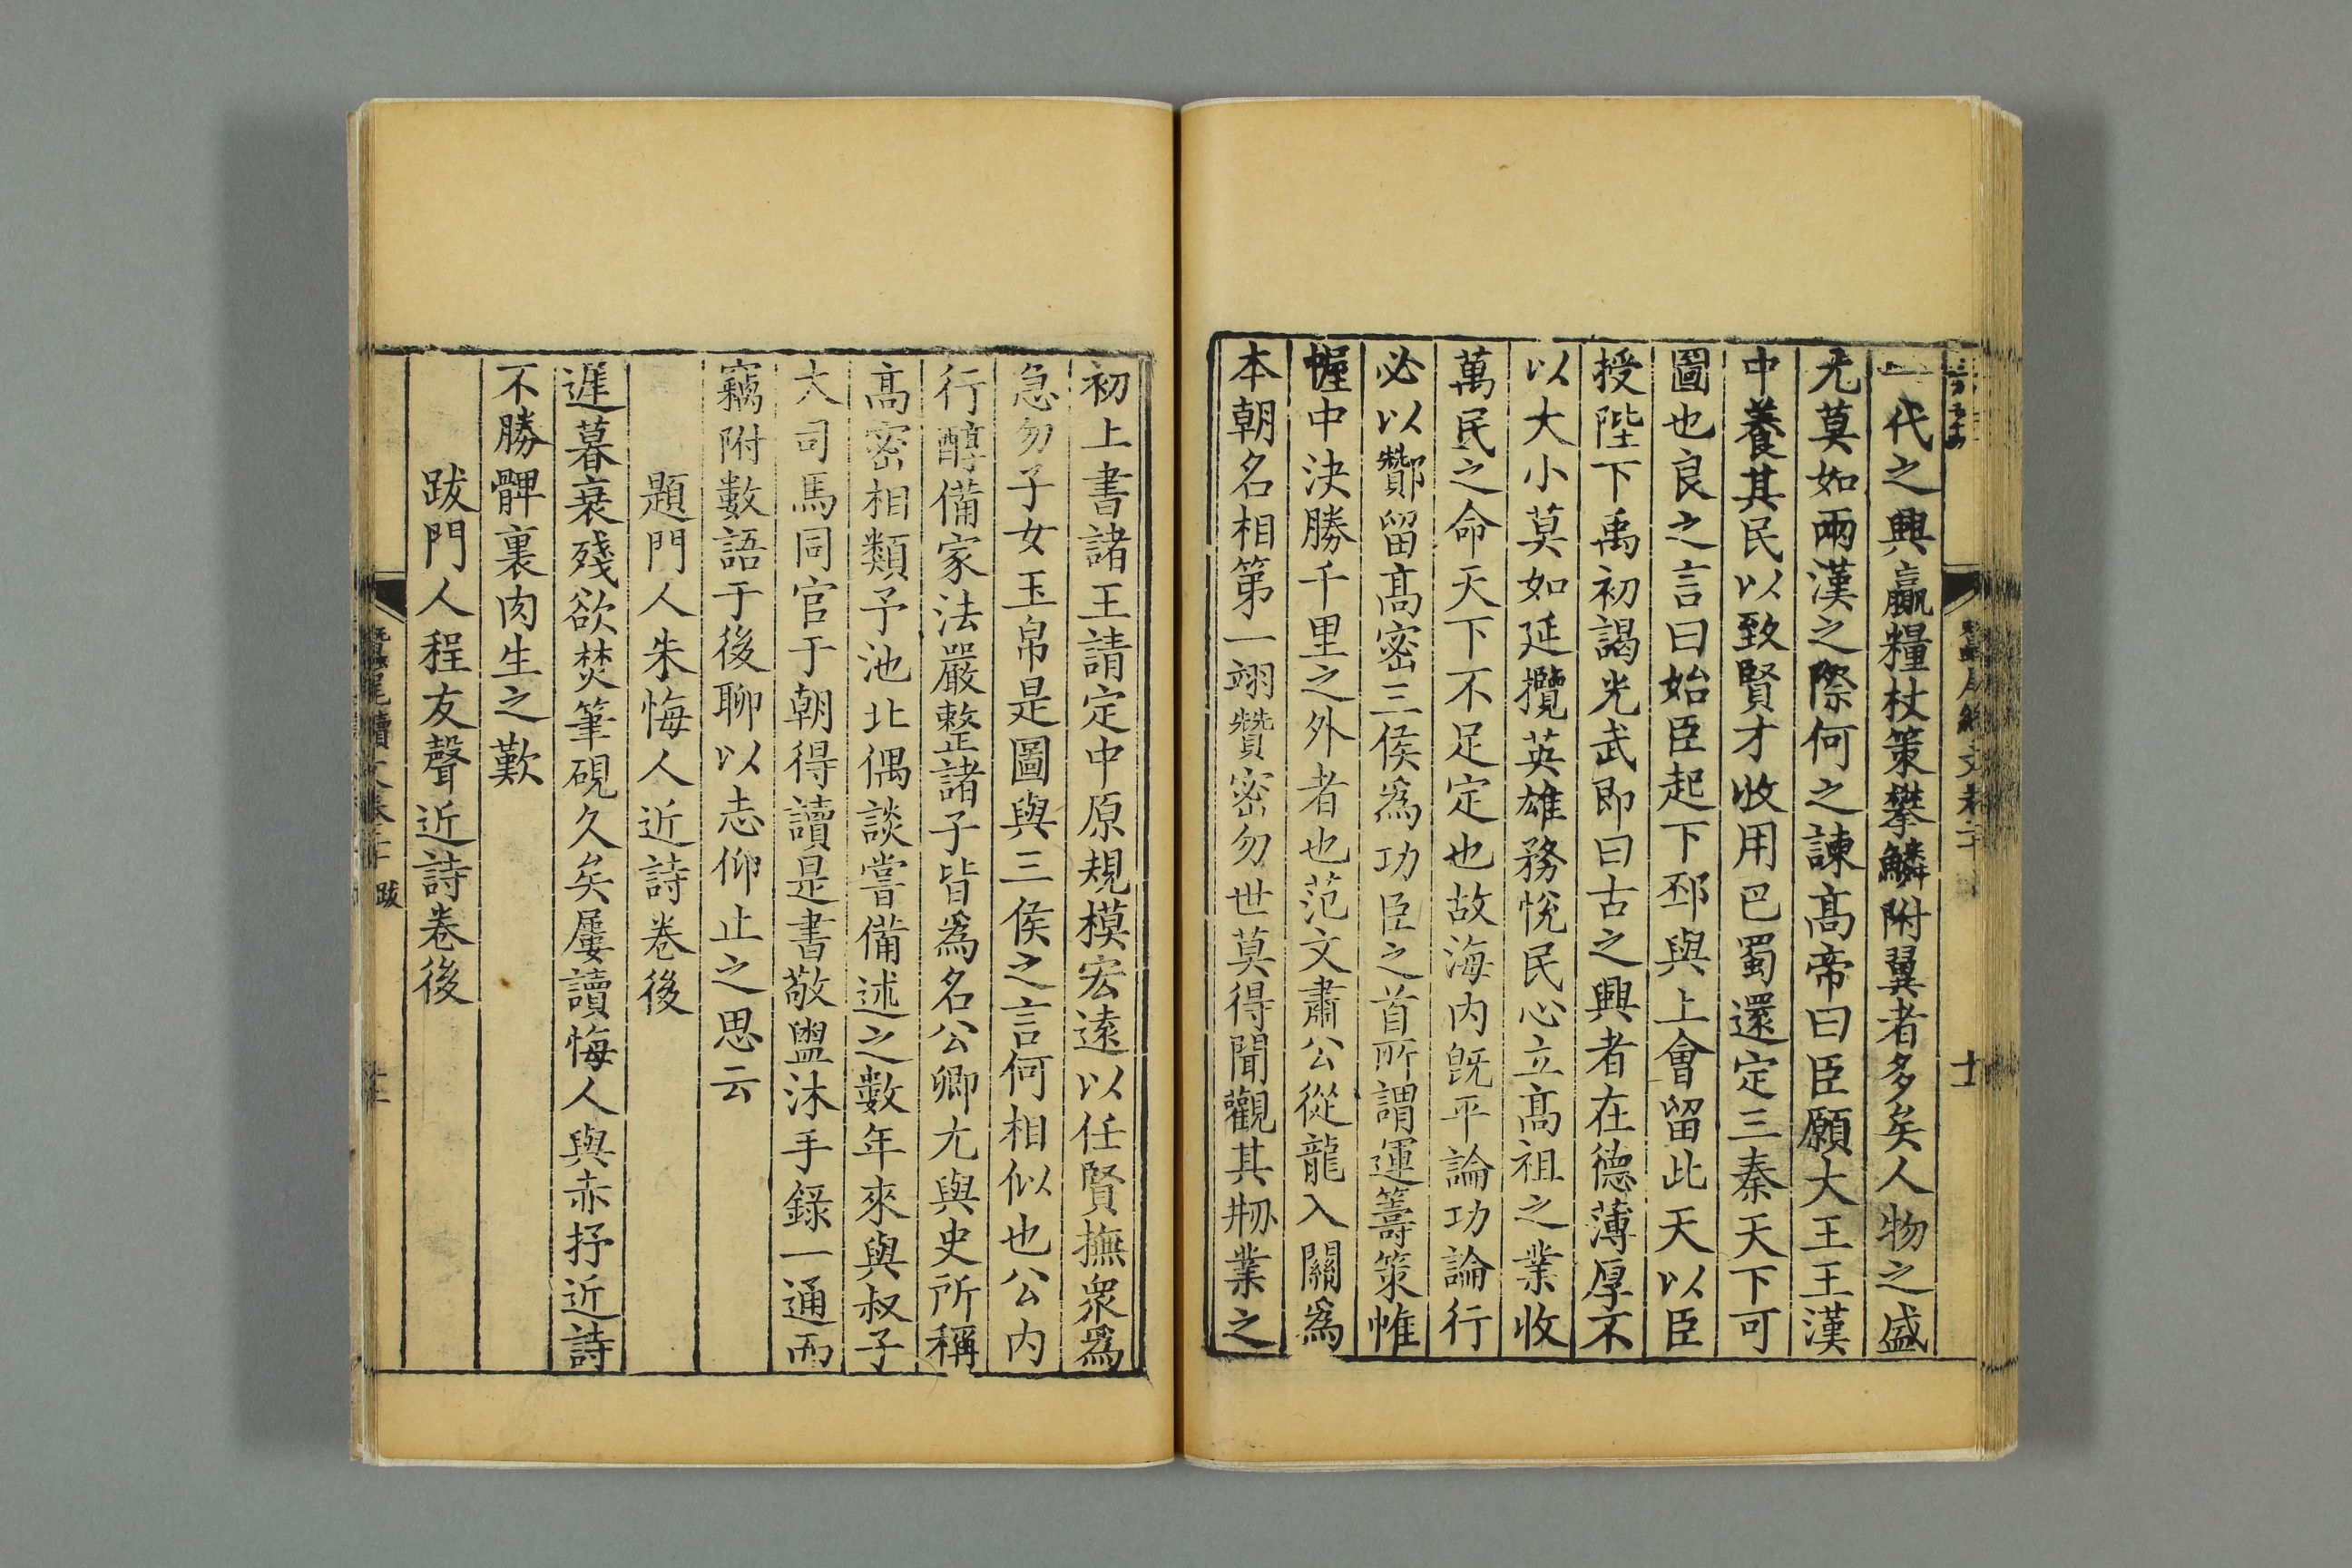 一代之興贏糧杖策攀鱗附翼者多矣人物之盛
尤莫如兩漢之際何之諫髙帝曰臣願大王王漢
中養其民以致賢才收用巴蜀還定三秦天下可
圖也良之言曰始臣起下邳與上會留此天以臣
授陛下禹初謁光武即曰古之興者在德薄厚不
以大小莫如延攬英雄務悅民心立髙祖之業收
萬民之命天下不足定也故海内旣平論功論行
必以酇留髙密三侯爲功臣之首所謂運籌策帷
幄中決勝千里之外者也范文肅公從龍入關爲
本朝名相第一翊贊密勿世莫得聞觀其剏業之
初上書諸王請定中原規模宏逺以任賢撫眾爲
急勿子女玉帛是圖與三侯之言何相似也公内
行醇備家法嚴整諸子皆爲名公卿尤與史所稱
髙密相類予池北偶談嘗備述之數年來與叔子
大司馬同官于朝得讀是書敬盥沐手錄一通而
竊附數語于後聊以志仰止之思云
題門人朱悔人近詩卷後
遲暮衰殘欲焚筆硯久矣屢讀悔人與赤抒近詩
不勝髀裏肉生之歎
跋門人程友聲近詩卷後
跋